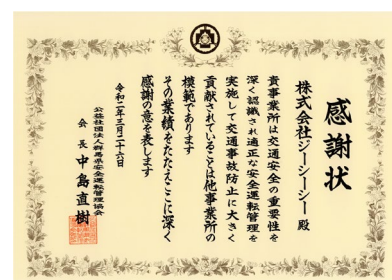 感謝状
株式会社ジーシーシー 殿
貴事業所は交通安全の重要性を
深く認識され適正な安全運転管理を
実施して交通事故防止に大きく
貢献されていることは他事業所の
模範であります
その業績をたたえここに深く
感謝の意を表します
令和二年三月二十六日
公益社団法人群馬県安全運転管理協会
会長 中島直樹